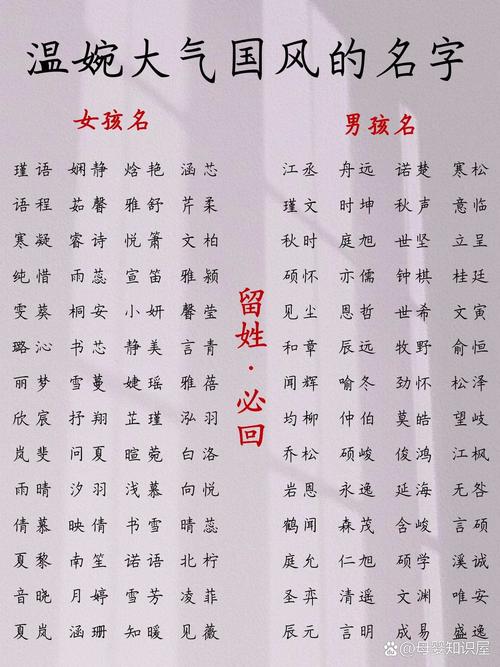 温婉大气国风的名字
女孩名
瑾语 娴静 焓艳 涵芯
语程 茹馨 雅舒 芹柔
寒凝 睿诗 悦箫 文柏
纯惜 雨蕊 宣笛 雅颍
雯葵 桐安 小妍 馨莹
璐沁 书芯 静美 言青
丽梦 雪蔓 婕瑶 雅蓓
欣宸 抒翔 芷瑾 泓羽
岚斐 问夏 暄菀 白洛
雨晴 汐羽 浅慕 向悦
倩慕 映倩 书雪 晴蕊
夏黎 南笙 诺语 北柠
音晓 月婷 雪芳 凌菲
夏岚 涵珊 知暖 见薇
留姓·必回
男孩名
江丞 舟远 诺楚 寒松
瑾文 时坤 秋声 意临
秋时 庭旭 世坚 立呈
硕怀 亦儒 钟棋 桂廷
见尘 恩哲 世希 文寅
和章 辰远 牧野 俞恒
闻辉 喻冬 劲怀 松泽
均柳 仲伯 莫皓 望岐
乔松 硕峻 俊鸿 江枫
岩恩 永逸 延海 无咎
鹤闻 森茂 含峻 言硕
庭允 仁旭 硕学 溪诚
圣弈 清遥 文渊 唯安
辰元 言明 成易 盛逸
@母婴知识屋